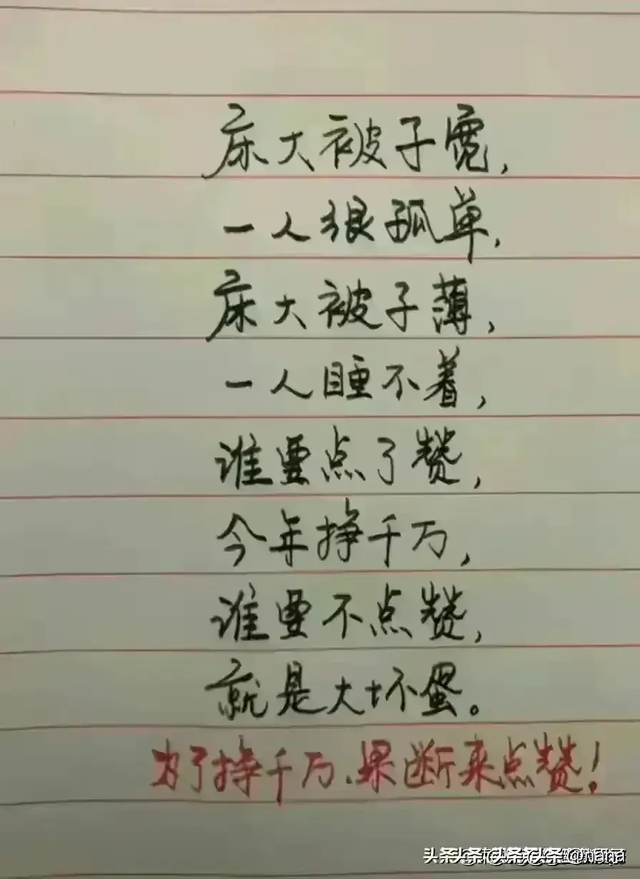 床大被子宽,
一人狠孤单,
床大被子薄,
一人睡不着,
谁要点了赞,
今年挣千万,
谁要不点赞,
就是大坏蛋。
为了挣千万、果断来点赞!
头条 @nana